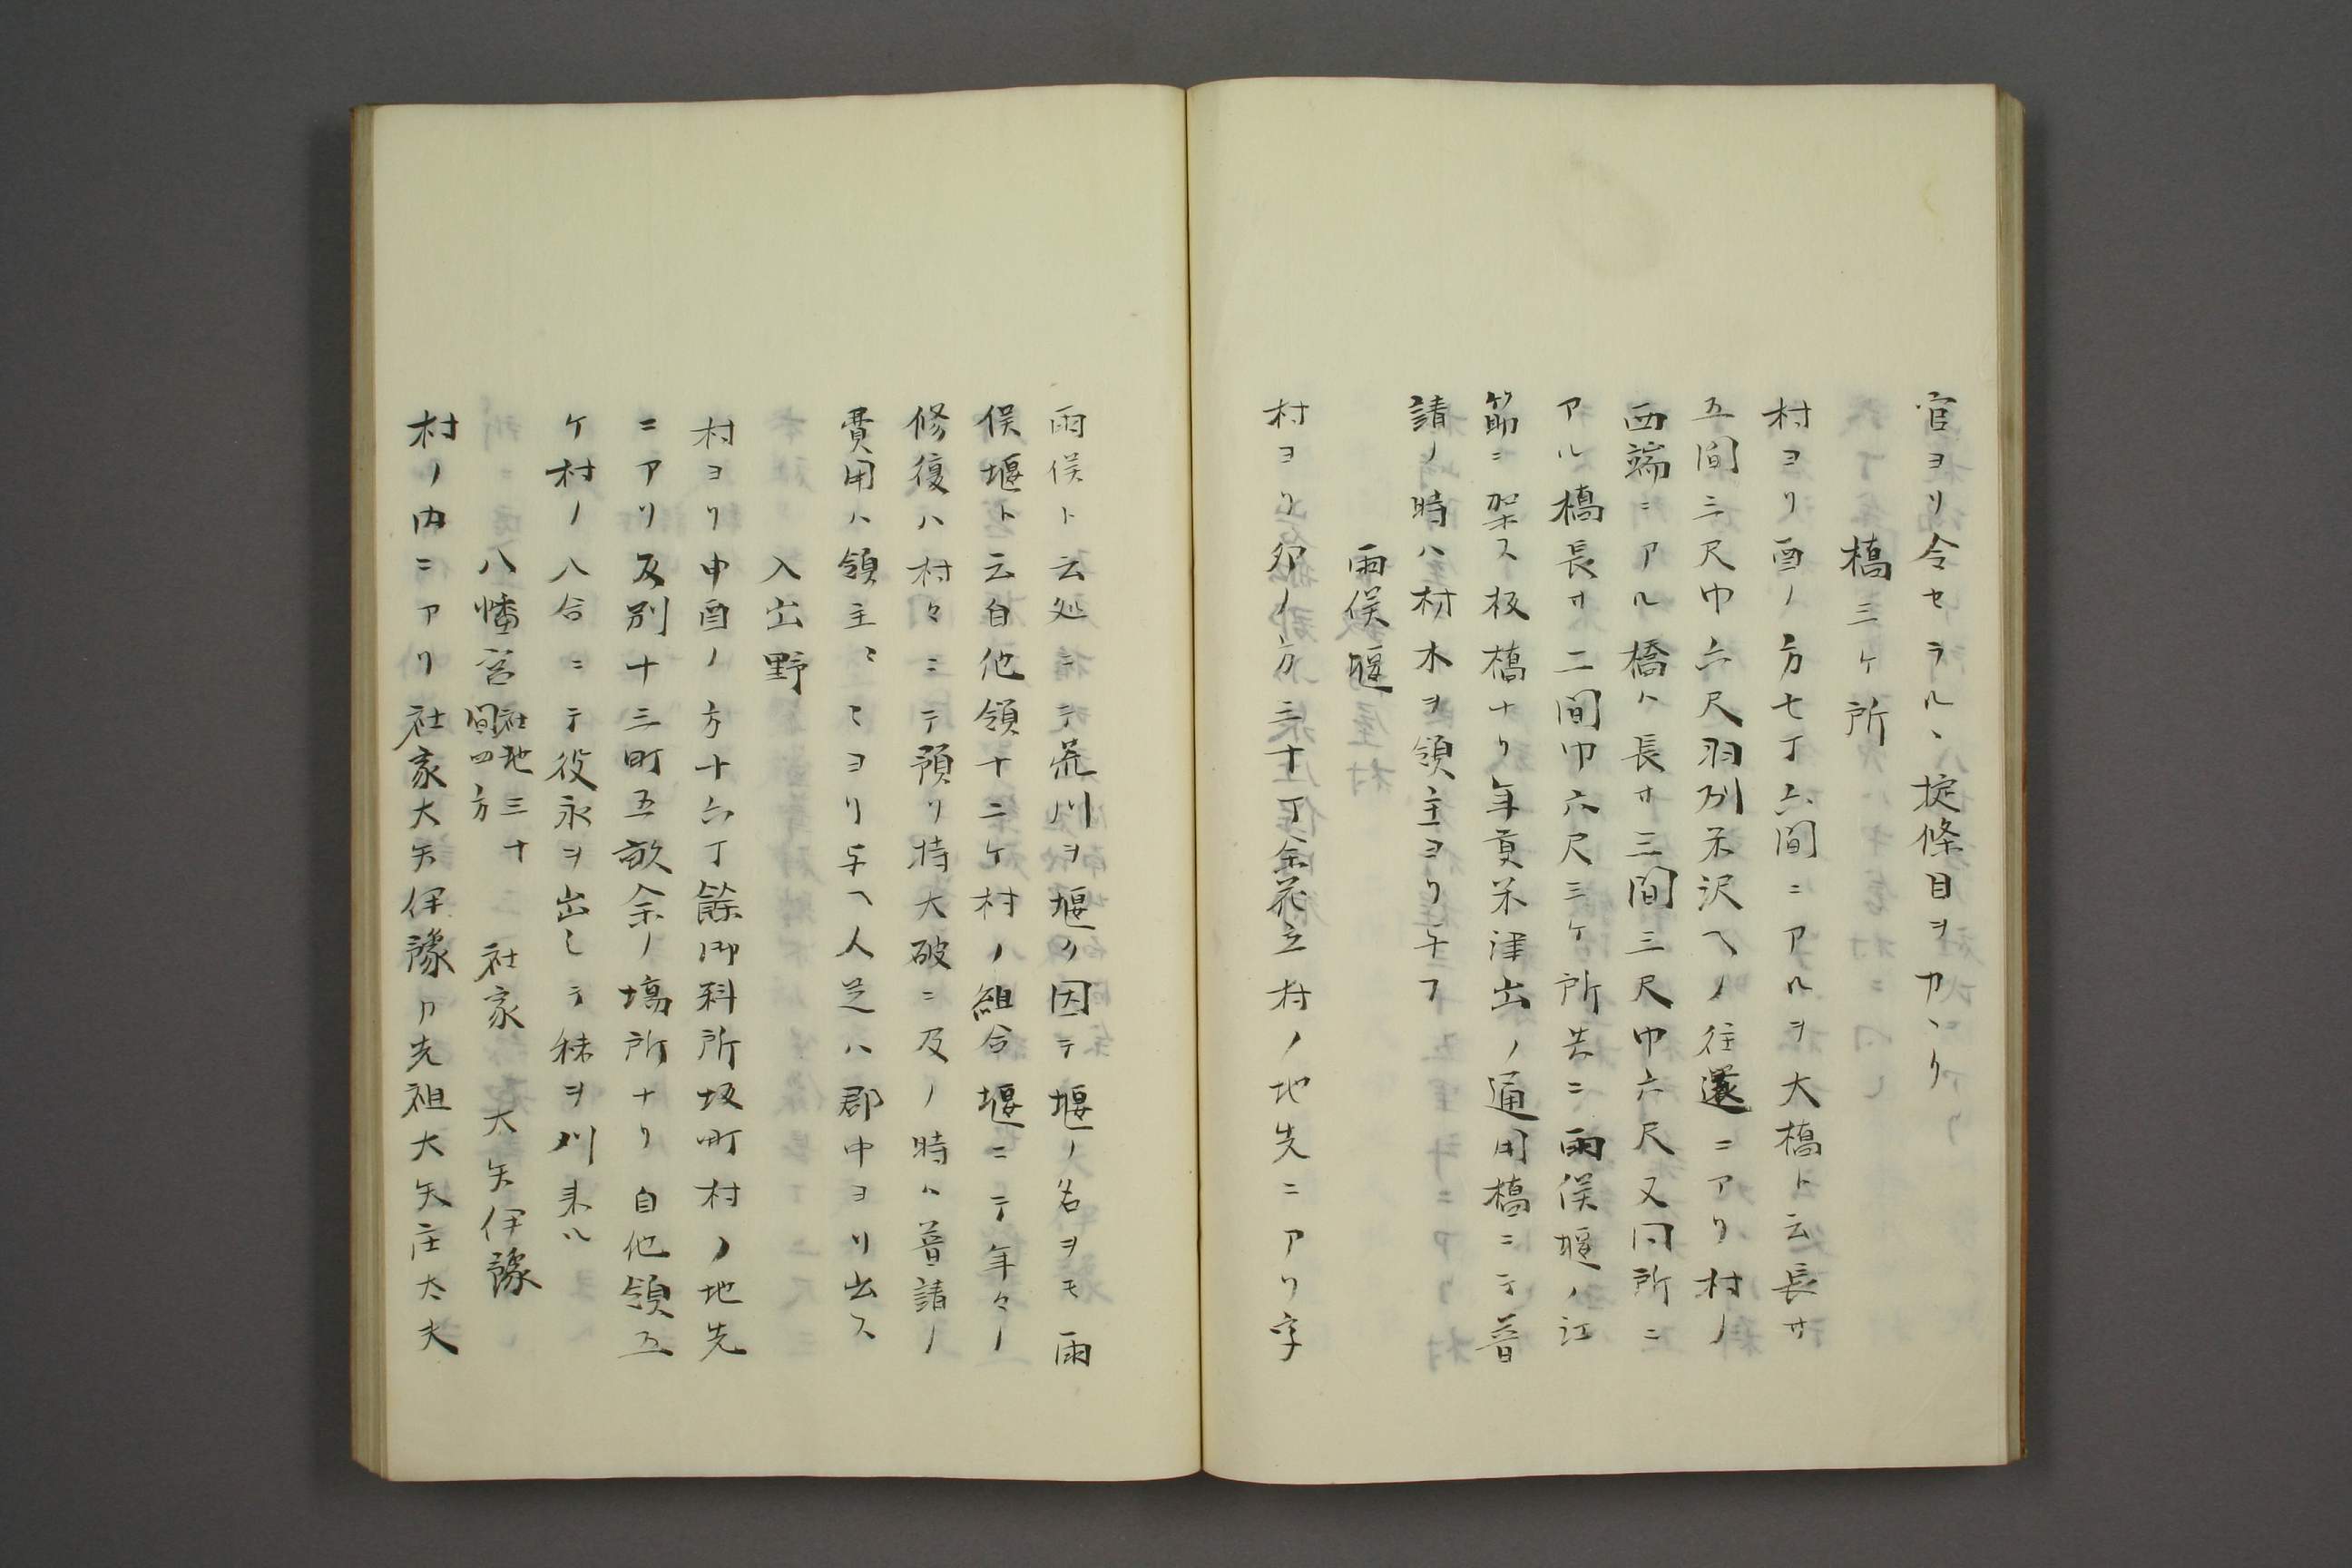 官ヨリ令セラルヽ掟條目ヲカヽリ
橋三ケ所
村ヨリ酉ノ方七丁六間ニアルヲ大橋ト云長サ
五間三尺巾六尺羽刕米沢ヘノ往還ニアリ村ノ
西端ニアル橋ハ長サ三間三尺巾六尺又同所ニ
アル橋長サ二間巾六尺三ケ所共ニ雨俣堰ノ江
筋ニ架ス板橋ナリ年貢米津出ノ通用橋ニテ普
請ノ時ハ材木ヲ領主ヨリ与フ
雨俣堰
村ヨリ夘ノ方三十丁余花立村ノ地先ニアリ字
雨俣ト云処ニテ荒川ヲ堰ク因テ堰ノ名ヲモ雨
俣堰ト云自他領十二ケ村ノ組合堰ニテ年々ノ
修復ハ村々ニテ預リ持大破ニ及ノ時ハ普請ノ
費用ハ領主ミミヨリ与ヘ人足ハ郡中ヨリ出ス
入出野
村ヨリ申酉ノ方十六丁餘御料所坂町村ノ地先
ニアリ反別十三町五畝余ノ場所ナリ自他領五
ケ村ノ入合ニテ役永ヲ出シテ秣ヲ刈来ル
八幡宮 社地三十二間四方 社家 大矢伊豫
村ノ内ニアリ社家大矢伊豫カ先祖大矢庄太夫